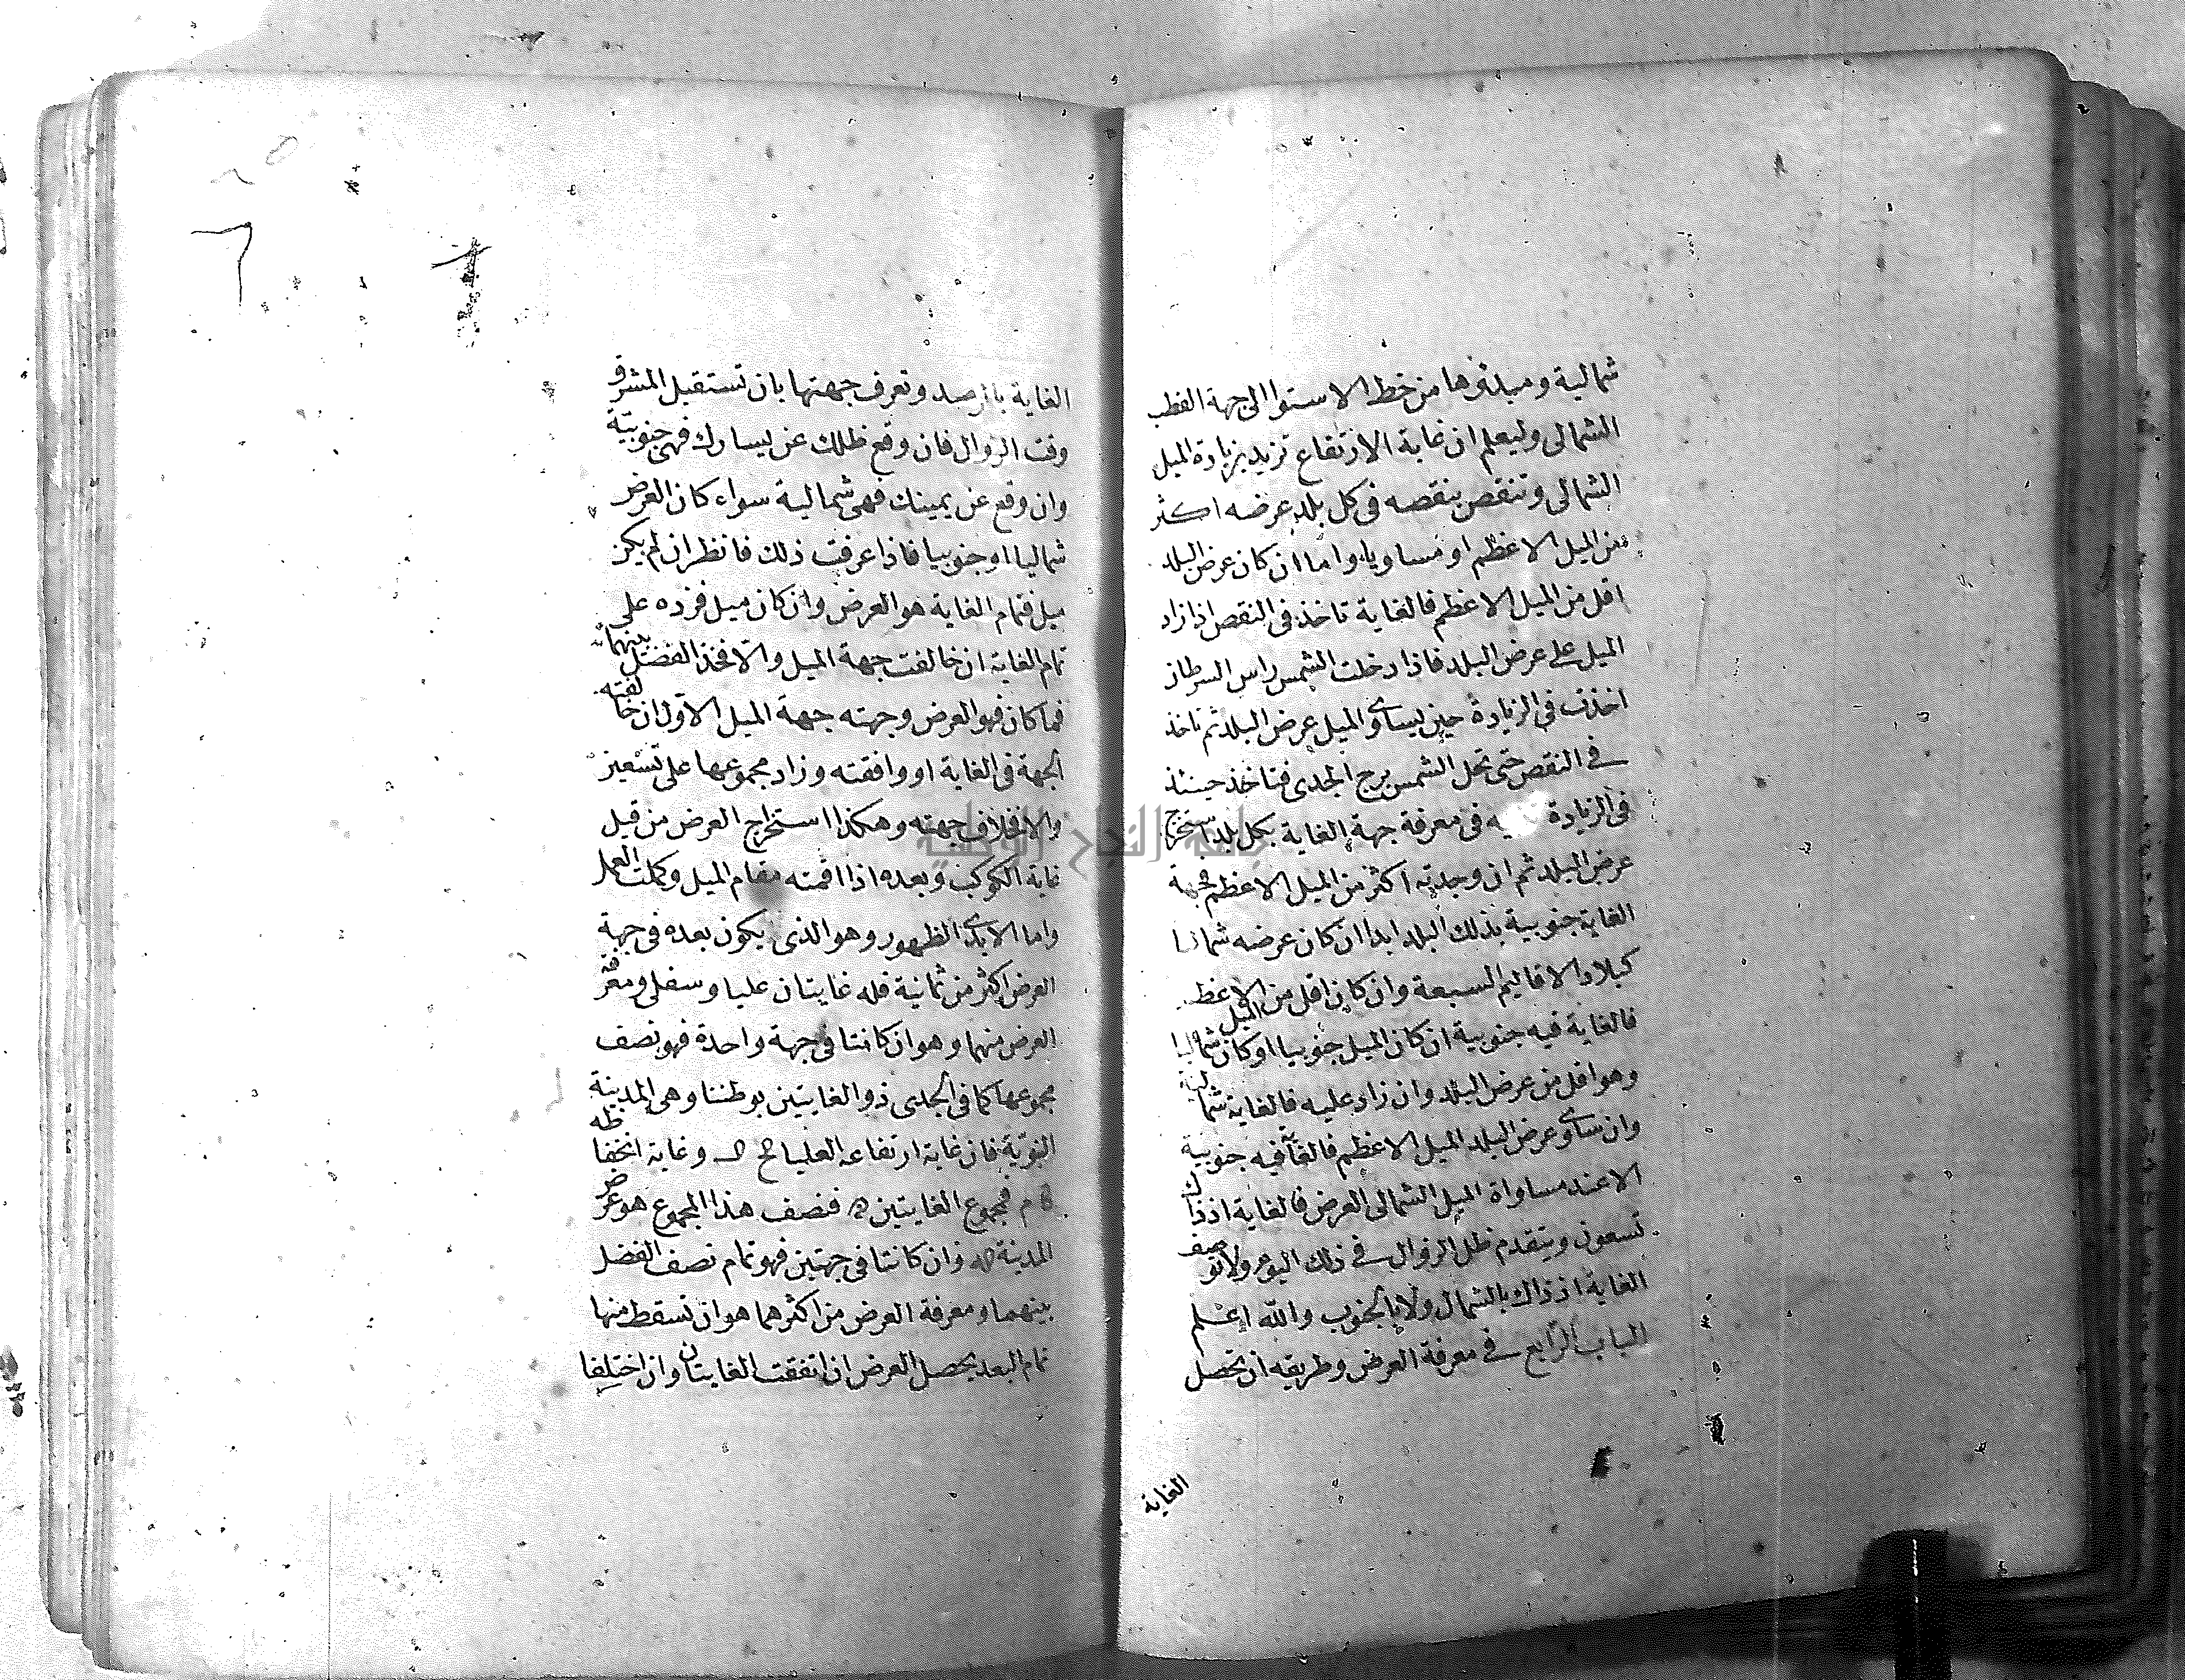 شمالية ومبدؤها من خط الاستوا الى جهة القطب
الشمالى وليعلم ان غاية الارتفاع تزيد بزيادة الميل
الشمالى وتنقص بنقصه فى كل بلد عرضه اكثر
من الميل الاعظم او مساويا واما ان كان عرض البلد
اقل من الميل الاعظم فالغاية تاخذ فى النقص اذا زاد
الميل على عرض البلد فاذا دخلت الشمس راس السرطان
اخذت فى الزيادة حين يساوى الميل عرض البلد ثم تاخذ
فى النقص حتى تحل الشمس برج الجدى فتاخذ حينئذ
فى الزيادة فى معرفة جهة الغاية بكل بلد استخرج
عرض البلد ثم ان وجدته اكثر من الميل الاعظم فجهة
الغاية جنوبية بذلك البلد ابدا ان كان عرضه شماليا
كبلاد الاقاليم السبعة وان كان اقل من الميل الاعظم
فالغاية فيه جنوبية ان كان الميل جنوبيا او كان شماليا
وهو اقل من عرض البلد وان زاد عليه فالغاية شمالية
وان ساوى عرض البلد الميل الاعظم فالغاية فيه جنوبية
الا عند مساواة الميل الشمالى العرض فالغاية اذذاك
تسعون وينعدم ظل الزوال فى ذلك اليوم ولا توصف
الغاية اذ ذاك بالشمال ولا بالجنوب والله اعلم
الباب الرابع فى معرفة العرض وطريقه ان تحصل
الغاية
الغاية بالرصد وتعرف جهتها بان تستقبل المشرق
وقت الزوال فان وقع ظلك عن يسارك فهى جنوبية
وان وقع عن يمينك فهى شمالية سواء كان العرض
شماليا او جنوبيا فاذا عرفت ذلك فانظر ان لم يكن
ميل فتمام الغاية هو العرض وان كان ميل فزده على
تمام الغاية ان خالفت جهة الميل والا فخذ الفضل بينهما
فما كان فهو العرض وجهته جهة الميل الاول ان خالفته
الجهة فى الغاية او وافقته وزاد مجموعها على تسعين
والا فخلاف جهته وهكذا استخراج العرض من قبل
غاية الكوكب وبعده اذا اقمته مقام الميل وكملت العمل
واما الابدى الظهور وهو الذى يكون بعده فى جهة
العرض اكثر من ثمانية فله غايتان عليا وسفلى ومعرفة
العرض منهما وهو ان كانتا فى جهة واحدة فهو نصف
مجموعها كما فى الجدى ذو الغايتين بوطننا وهى المدينة
النبوية فان غاية ارتفاعه العليا وغاية انخفاظه
فمجموع الغايتين فنصف هذا المجموع هو عرض
المدينة وان كانتا فى جهتين فهو تمام نصف الفضل
بينهما ومعرفة العرض من اكثرهما هو ان تسقط منها
تمام البعد يحصل العرض ان اتفقت الغايتان وان اختلفا